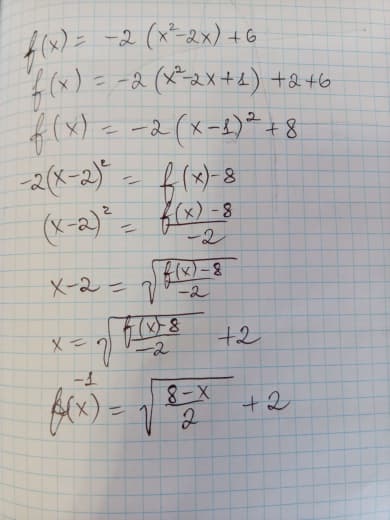 f(x) = -2 (x²-2x) +6
f(x) = -2 (x²-2x+1) +2+6
f(x) = -2 (x-1)² +8
-2(x-2)² = f(x)-8
(x-2)² = (f(x)-8)/-2
x-2 = √((f(x)-8)/-2)
x = √((f(x)-8)/-2) +2
f⁻¹(x) = √((8-x)/2) +2